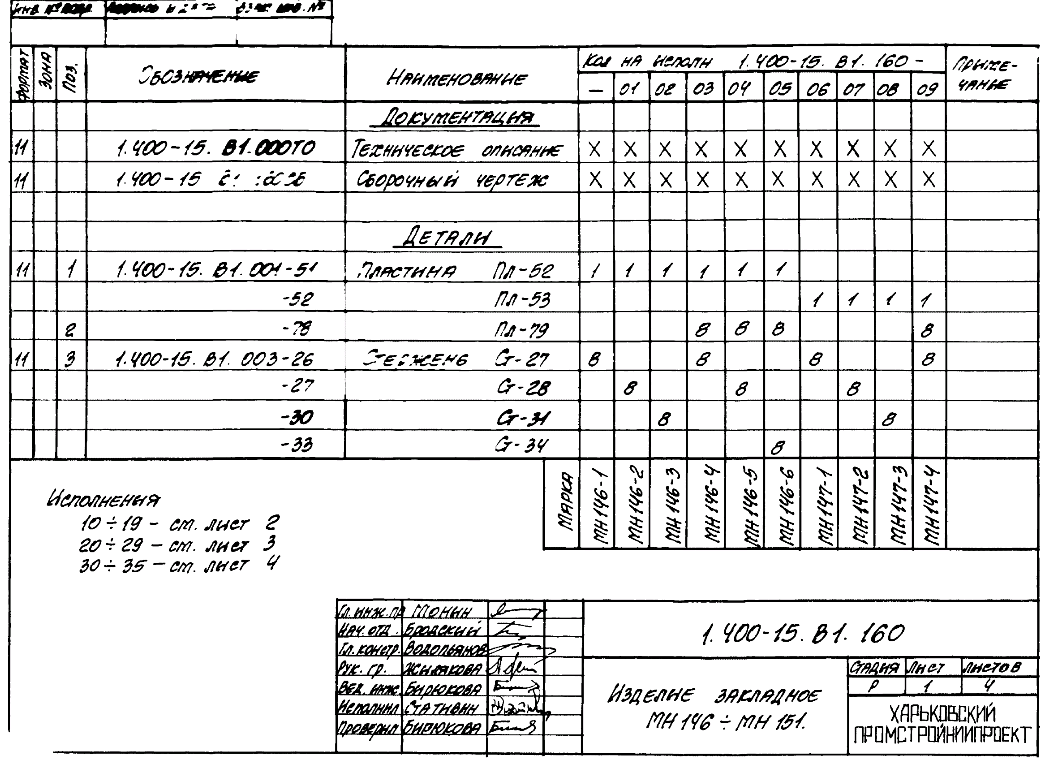 Инв. № подл. Подпись и дата Взам. инв. №
Формат Зона Поз. Обозначение Наименование Кол на исполн 1.400-15. В1. 160 - Примечание
— 01 02 03 04 05 06 07 08 09
Документация
11 1.400-15. В1.000ТО Техническое описание X X X X X X X X X X
11 1.400-15 Сборочный чертеж X X X X X X X X X X
Детали
11 1 1.400-15. В1. 001-51 Пластина Пл-52 1 1 1 1 1 1
-52 Пл-53 1 1 1 1
2 -78 Пл-79 8 8 8 8
11 3 1.400-15. В1. 003-26 Стержень Ст-27 8 8 8 8
-27 Ст-28 8 8 8
-30 Ст-31 8 8
-33 Ст-34 8
Марка МН146-1 МН146-2 МН146-3 МН146-4 МН146-5 МН146-6 МН147-1 МН147-2 МН147-3 МН147-4
Исполнения
10÷19 - см. лист 2
20÷29 - см. лист 3
30÷35 - см. лист 4
Гл. инж. пр Монин
Нач. отд. Бродский
Гл. констр. Водопьянов
Рук. гр. Жилякова
Вед. инж. Бирюкова
Исполнил Стативин
Проверил Бирюкова
1.400-15. В1. 160
Изделие закладное
МН146 ÷ МН 151.
Стадия Лист Листов
Р 1 4
ХАРЬКОВСКИЙ
ПРОМСТРОЙНИИПРОЕКТ